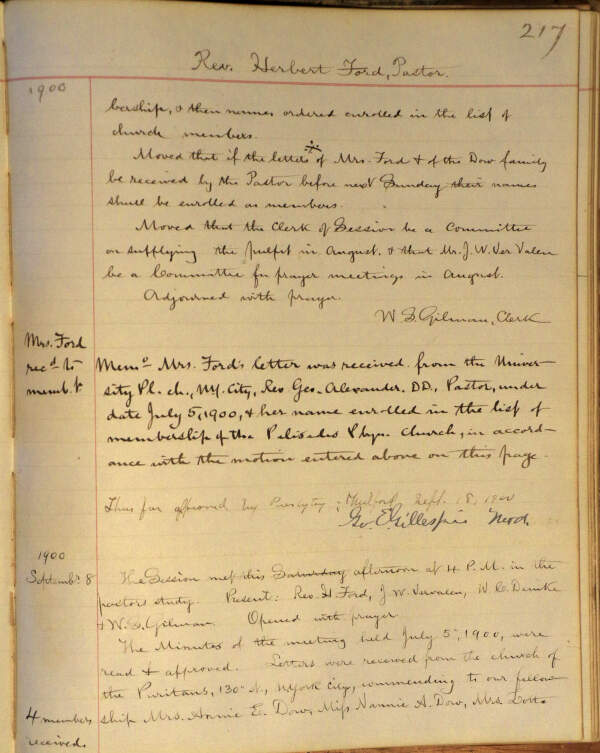 217
Rev. Herbert Ford, Pastor.
1900
bership, & their names ordered enrolled in the list of
church members.
Moved that if the letters of Mrs. Ford & of the Dow family
be received by the Pastor before next Sunday their names
shall be enrolled as members.
Moved that the Clerk of Session be a Committee
on supplying the pulpit in August. & that Mr. J. W. Ver Valen
be a Committee for prayer meetings in August.
Adjourned with prayer.
W. S. Gilman, Clerk
Mrs. Ford
rec'd to
memb.
Memo. Mrs. Ford's letter was received from the Univer-
sity Pl. ch., N.Y. City, Rev Geo. Alexander. D.D., Pastor, under
date July 5, 1900, & her name enrolled in the list of
membership of the Palisades Pbyn. Church, in accord-
ance with the motion entered above on this page.
Thus far approved by Presbytery; Sept. 18, 1900
Geo. E. Gillespie Mod.
1900
Septemb. 8
The Session met this Saturday afternoon at 4 P.M. in the
pastor's study. Present: Rev. H. Ford, J. W. Vervalen, W. C.
& W. S. Gilman. Opened with prayer.
The Minutes of the meeting held July 5, 1900, were
read & approved. Letters were received from the church of
the Puritans, 130" St., N York City, commending to our fellow
4 members
received
ship Mrs. Annie E. Dow, Miss Nannie A. Dow, Mrs.